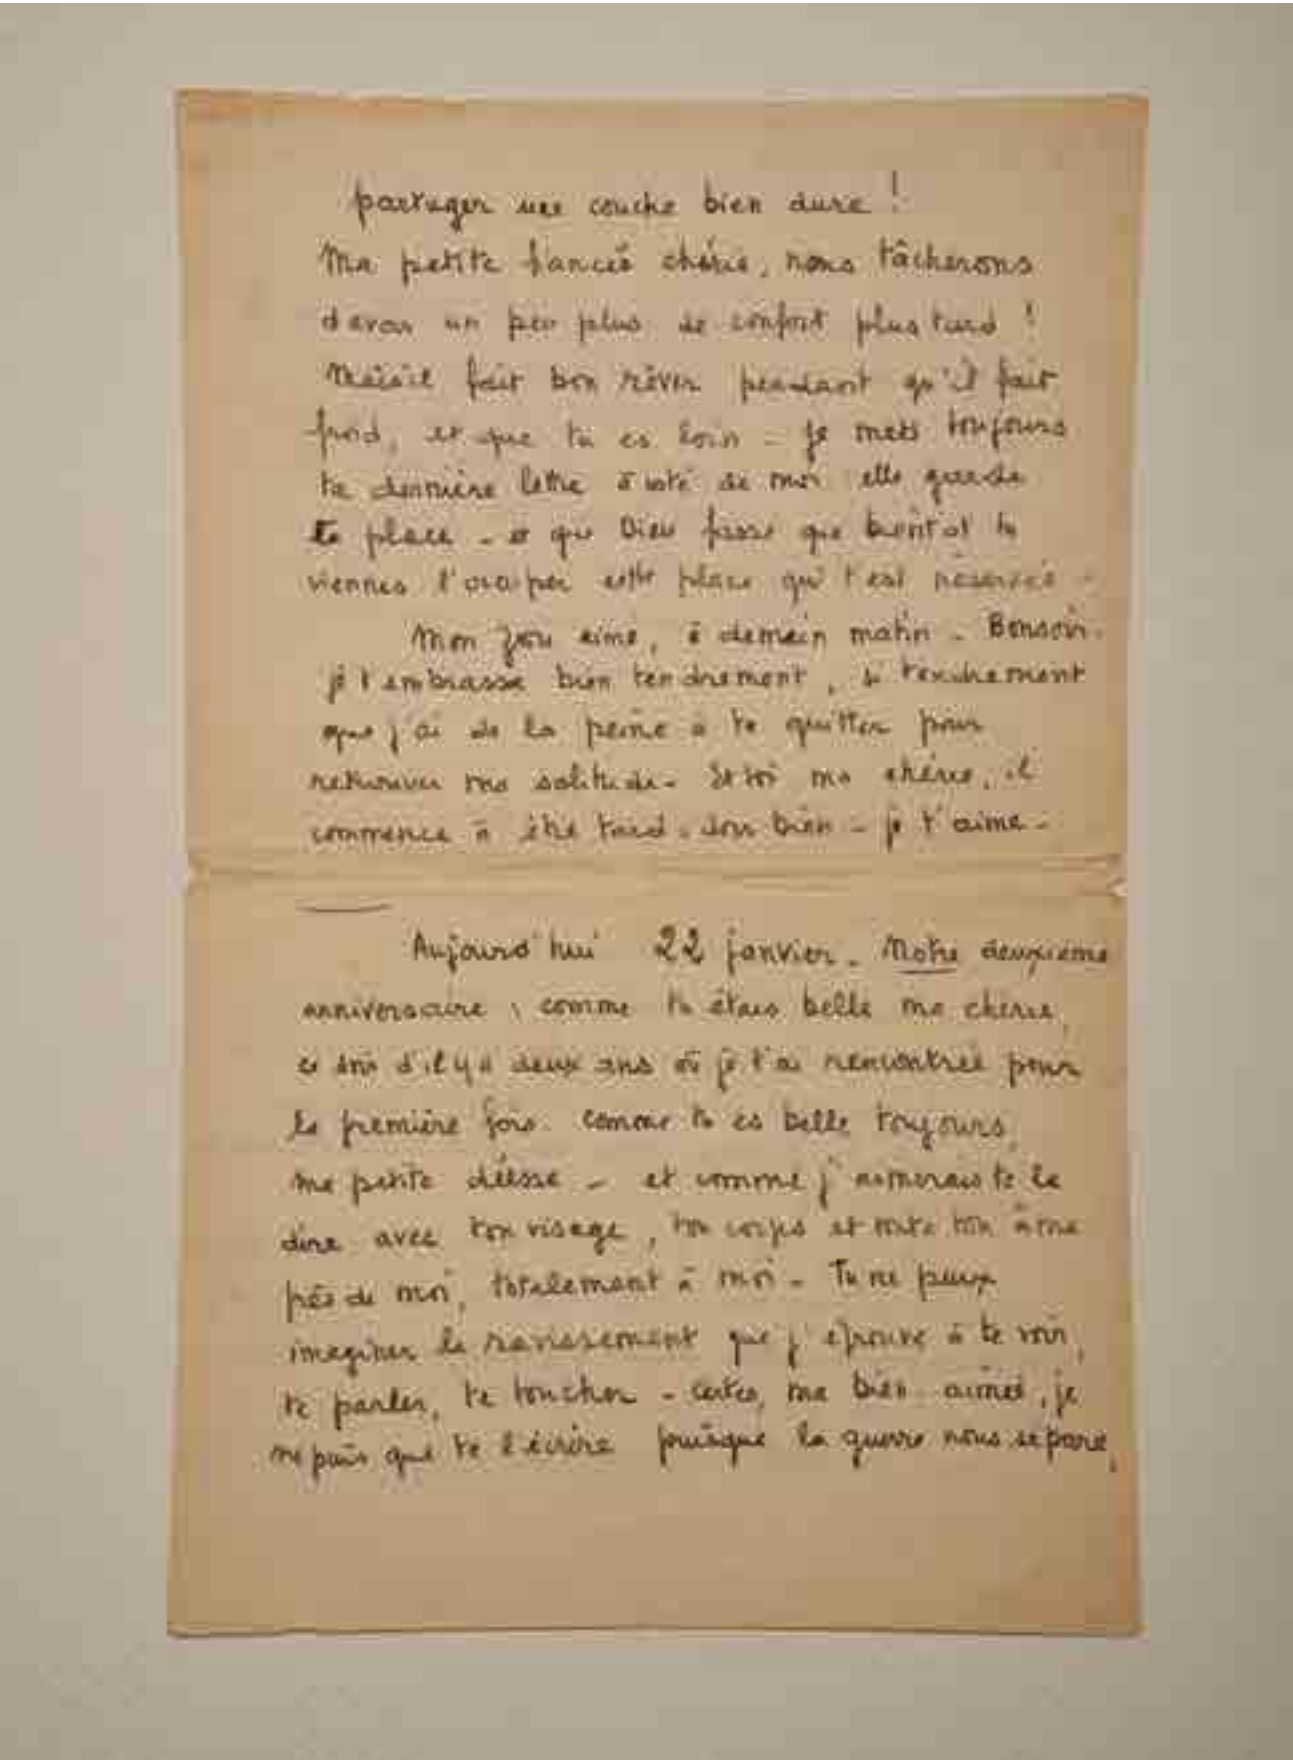 partager une couche bien dure !
Ma petite fiancée chérie, nous tâcherons
d'avoir un peu plus de confort plus tard !
Mais il fait bon rêver pendant qu'il fait
froid, et que tu es loin - je mets toujours
ta dernière lettre à côté de moi elle garde
ta place - et que Dieu fasse que bientôt tu
viennes l'occuper cette place qui t'est réservée -
Mon aimé, à demain matin - Bonsoir.
je t'embrasse bien tendrement, si tendrement
que j'ai de la peine à te quitter pour
retrouver ma solitude - Et toi ma chérie, il
commence à être tard. dors bien - je t'aime -
Aujourd'hui 22 janvier - Notre deuxième
anniversaire, comme tu étais belle ma chérie,
ce soir d'il y a deux ans où je t'ai rencontrée pour
la première fois. comme tu es belle toujours,
ma petite déesse - et comme j'aimerais te le
dire avec ton visage, ton corps et toute ton âme
près de moi, totalement à moi - Tu ne peux
imaginer le ravissement que j'éprouve à te voir,
te parler, te toucher - certes, ma bien aimée, je
ne puis que te l'écrire puisque la guerre nous sépare,